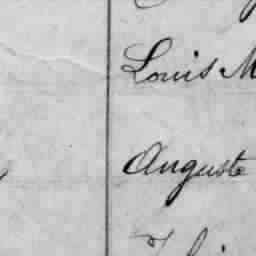 Louis M
Auguste